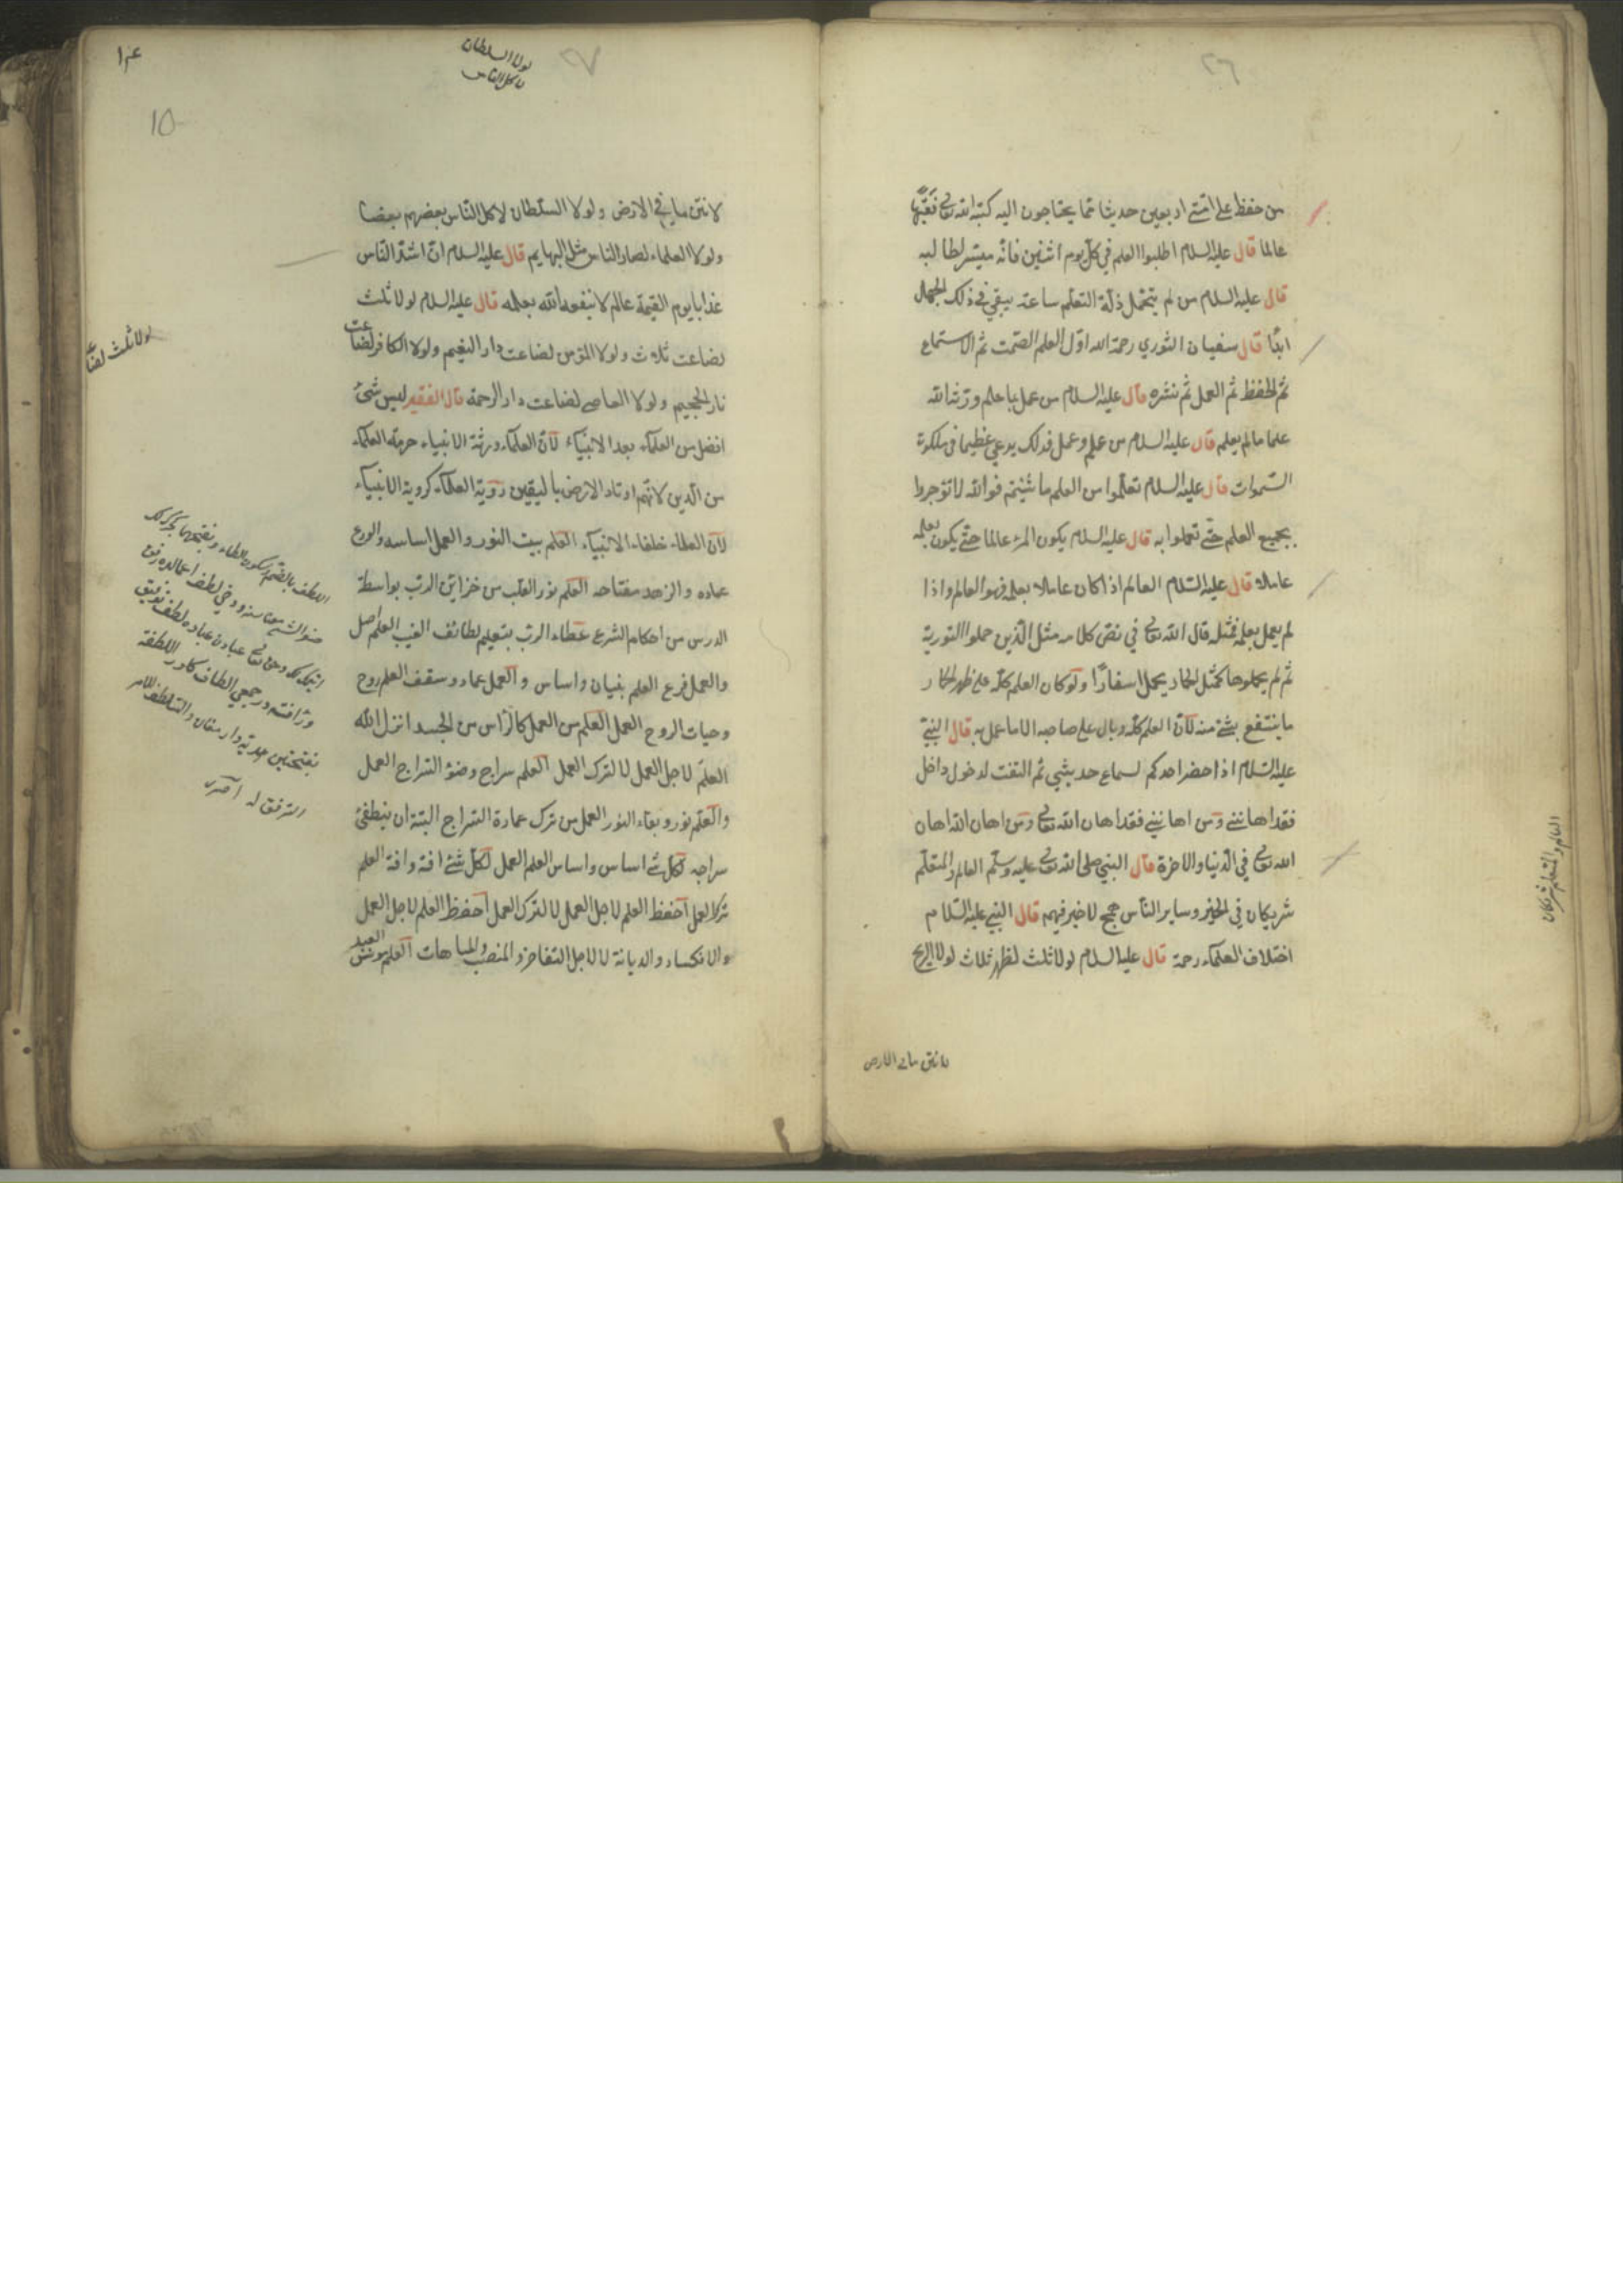 ٢٦
من حفظ على امتي اربعين حديثا مما يحتاجون اليه كتبه الله تعالى فقيها
عالما قال عليه السلام اطلبوا العلم في كل يوم اثنين فانه ميسر لطالبه
قال عليه السلام من لم يتحمل ذلة التعلم ساعة يبقي في ذلك الجهال
ابدا قال سفيان الثوري رحمة الله اول العلم الصمت ثم الاستماع
ثم الحفظ ثم العمل ثم نشره قال عليه السلام من عمل بما علم ورثه الله
علما مالم يعلم قال عليه السلام من علم وعمل فذلك يدعي عظيما في ملكوت
السموات قال عليه السلام تعلموا من العلم ما شئتم فوالله لا تؤجروا
بجميع العلم حتى تعملوا به قال عليه السلام يكون المرء عالما حتى يكون بعلمه
عاملا قال عليه السلام العالم اذا كان عاملا بعلمه فهو العالم واذا
لم يعمل بعلمه فمثله قال الله تعالى في نص كلامه مثل الذين حملوا التورية
ثم لم يحملوها كمثل الحمار يحمل اسفارًا ولو كان العلم كله على ظهر الحمار
ما ينتفع بشئ منه لان العلم كله وبال على صاحبه الا ما عمل به قال النبي
عليه السلام اذا حضر احدكم لسماع حديثي ثم التفت لدخول داخل
فقد اهانني ومن اهانني فقد اهان الله تعالى ومن اهان الله اهان
الله تعالى في الدنيا والاخرة قال النبي صلى الله تعالى عليه وسلم العالم والمتعلم
شريكان في الخير وساير الناس همج لا خير فيهم قال النبي عليه السلام
اختلاف العلماء رحمة قال عليه السلام لولا ثلث لظهر ثلاث لولا الريح
لانتن ما في الارض
العالم والمتعلم شريكان
٢٧
لولا السلطان
لاكل الناس
15
لانتن ما في الارض ولولا السلطان لاكل الناس بعضهم بعضا
ولولا العلماء لصار الناس مثل البهايم قال عليه السلام ان اشد الناس
عذابا يوم القيمة عالم لا ينفعه الله بعلمه قال عليه السلام لولا ثلث
لضاعت ثلاث ولولا المؤمن لضاعت دار النعيم ولولا الكافر لضاعت
نار الجحيم ولولا العاصي لضاعت دار الرحمة قال الفقير ليس شئ
افضل من العلماء بعد الانبياء لان العلماء ورثة الانبياء حرمة العلماء
من الدين لانهم اوتاد الارض باليقين رؤية العلماء كرؤية الانبياء
لان العلماء خلفاء الانبياء العلم بيت النور والعمل اساسه والورع
عماده والزهد مفتاحه العلم نور القلب من خزاين الرب بواسطة
الدرس من احكام الشرع عطاء الرب بتعليم لطائف الغيب العلم اصل
والعمل فرع العلم بنيان واساس والعمل عماد وسقف العلم روح
وحيات الروح العمل العلم من العمل كالراس من الجسد انزل الله
العلم لاجل العمل لا لترك العمل العلم سراج وضوء السراج العمل
والعلم نور وبقاء النور العمل من ترك عمارة السراج البتة ان ينطفئ
سراجه لكل شئ اساس واساس العلم العمل لكل شئ افة وافة العلم
ترك العمل احفظ العلم لاجل العمل لا لترك العمل احفظ العلم لاجل العمل
والانكسار والديانة لا لاجل التفاخر والمنصب والمباهات العلم مونس العبد
لولا ثلث لضاعت
اللطف بالضم وسكون الطاء